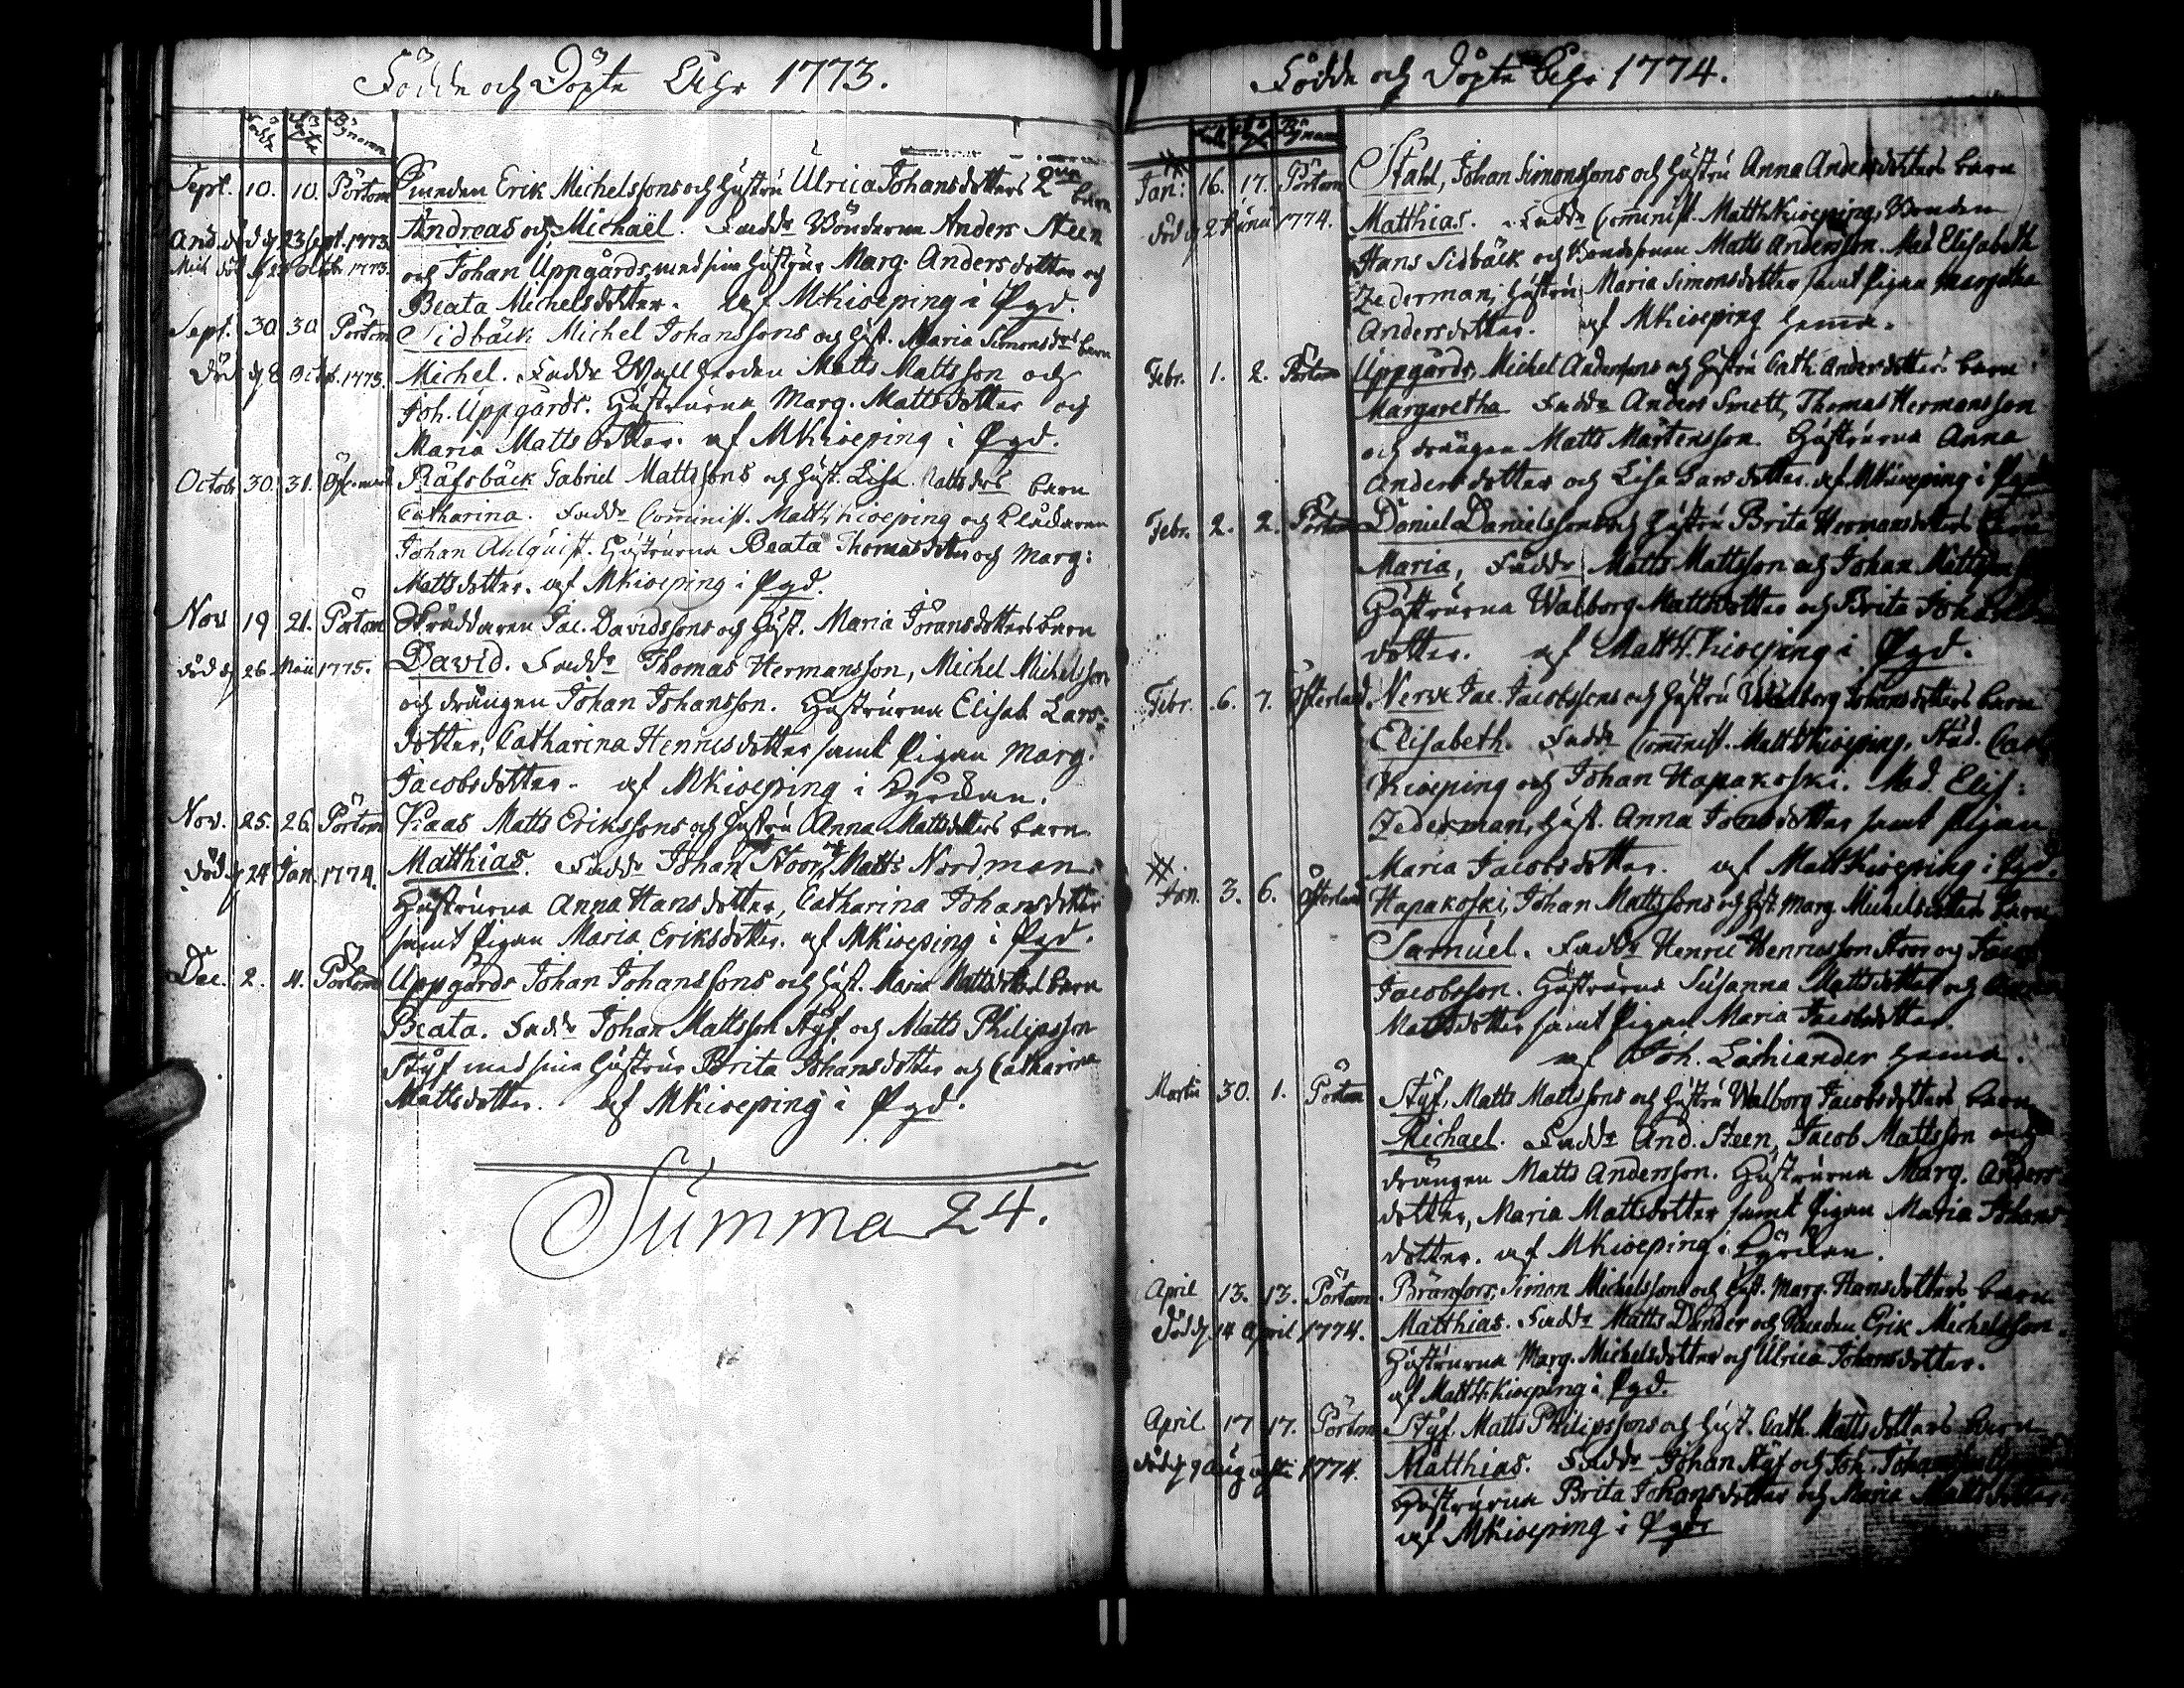 Födde och Döpte Åhr 1773.
Födde Döpte Bynamn
Sept. 10. 10. Pörtom Smeden Erik Michelssons och hustru Ulrica Johansdotters 2 barn
And. död d. 23 Sept. 1773. Andreas och Michaël. Fadd. Bönderne Anders Steen
Mich död 1773. och Johan Uppgårds, med sina hustrur Marg. Andersdotter och
Beata Michelsdotter. af MKioeping i Pgd.
Sept. 30 30 Pörtom Sidbäck Michel Johanssons och hust. Maria Simonsdrs barn
Död d. 8 Octob. 1773. Michel. Fadd. Matts Mattsson och
Joh. Uppgårds. Hustrurna Marg. Mattsdotter och
Maria Mattsdotter. af MKioeping i Pgd.
Octob. 30 31. Räfsbäck Gabriel Mattssons och hust. Lisa Mattsdrs barn
Catharina. Fadd. Comminist. Matth. Kioeping och Klockaren
Johan Ahlquist. Hustrurna Beata Thomasdotter och Marg:
Mattsdotter. af MKioeping i Pgd.
Nov 19 21. Pörtom Skräddaren Jac. Davidssons och hust. Maria Göransdotters barn
död d. 26 Maii 1775. David. Fadd. Thomas Hermansson, Michel Michelsson
och drängen Johan Johansson. Hustrurna Elisab. Lars-
dotter, Catharina Henricsdotter samt Pigan Marg.
Jacobsdotter. af MKioeping i Kyrckan.
Nov. 25. 26. Pörtom Klaas Matts Erikssons och hustru Anna Mattsdotters barn
död d. 24 Jan. 1774. Matthias. Fadd. Johan Stoor, Matts Nordman
Hustrurna Anna Hansdotter, Catharina Johansdotter
samt Pigan Maria Eriksdotter. af MKioeping i Pgd.
Dec. 2. 4. Pörtom Uppgårds Johan Johanssons och hust. Maria Mattsdotters barn
Beata. Fadd. Johan Mattsson Styf och Matts Philipsson
Styf med sina hustrur Brita Johansdotter och Catharina
Mattsdotter. af MKioeping i Pgd.
Summa 24.
Födde och Döpte Åhr 1774.
Bynamn
Jan: 16. 17. Pörtom Stahl, Johan Simonssons och hustru Anna Andersdotters barn
död d. 2 Junii 1774. Matthias. Fadd. Comminist. Matth. Kioeping, Bonden
Hans Sidbäck och Bondsonen Matts Andersson. Mad. Elisabeth
Zederman, hustru Maria Simonsdotter samt Pigan Margetha
Andersdotter. af MKioeping hema.
Febr. 1. 2. Pörtom Uppgårds, Michel Anderssons och hustru Cath. Andersdotters barn
Margaretha Fadd. Anders Smett, Thomas Hermansson
och drängen Matts Mårtensson. Hustrurna Anna
Andersdotter och Lisa Larsdotter. af MKioeping i Pgd.
Febr. 2. 2. Pörtom Daniel Danielssons och hustru Brita Hermansdotters barn
Maria, Fadd. Matts Mattsson och Johan Mattsson
Hustrurna Walborg Mattsdotter och Brita Johans-
dotter. af Matth. Kioeping i Pgd.
Febr. 6. 7. Österland. Nerve Jac. Jacobssons och hustru Walborg Johansdotters barn
Elisabeth. Fadd. Comminist. Matth Kioeping, Stud. Carl
Kioeping och Johan Hapakoski. Mad. Elis:
Zederman, hust. Anna Jonsdotter samt Pigan
Maria Jacobsdotter. af Matth Kioeping i Pgd.
Jan. 3. 6. Österland Hapakoski, Johan Mattssons och hust. Marg. Michelsdotters barn
Samuel. Fadd. Henric Henricsson Stoor och Jacob
Jacobsson. Hustrurna Susanna Mattsdotter och
Mattsdotter samt Pigan Maria Jacobsdotter.
af Joh. Lithiander hema.
Martii 30. 1. Pörtom Styf, Matts Mattssons och hustru Walborg Jacobsdotters barn
Michael. Fadd. And. Steen, Jacob Mattsson och
drängen Matts Andersson. Hustrurna Marg. Anders-
dotter, Maria Mattsdotter samt Pigan Maria Johans-
dotter. af MKioeping i Kyrckan.
April 13. 13. Pörtom Brännfors, Simon Michelssons och hust. Marg. Hansdotters barn
Död d. 14 April 1774. Matthias. Fadd. Matts Dunder och Smeden Erik Michelsson.
Hustrurna Marg. Michelsdotter och Ulrica Johansdotter.
af Matth. Kioeping i Pgd.
April 17 17. Pörtom Styf. Matts Philipssons och hust. Cath. Mattsdotters barn
död d. 9 Augusti 1774. Matthias. Fadd. Johan Styf och Joh. Johansson
Hustrurna Brita Johansdotter och Maria Mattsdotter.
af MKioeping i Pgd.